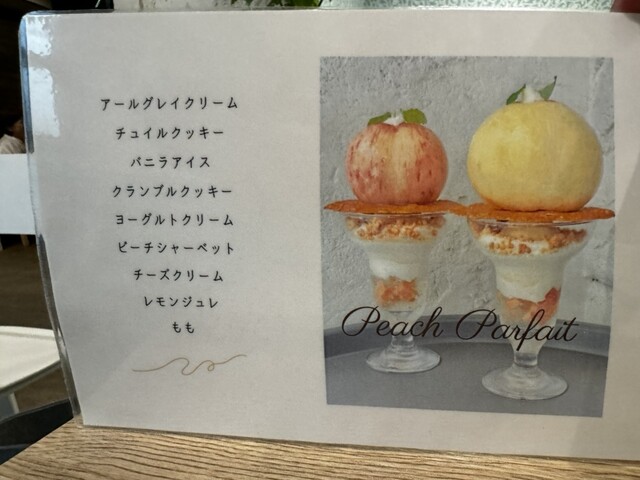 アールグレイクリーム
チュイルクッキー
バニラアイス
クランブルクッキー
ヨーグルトクリーム
ピーチシャーベット
チーズクリーム
レモンジュレ
もも
Peach Parfait